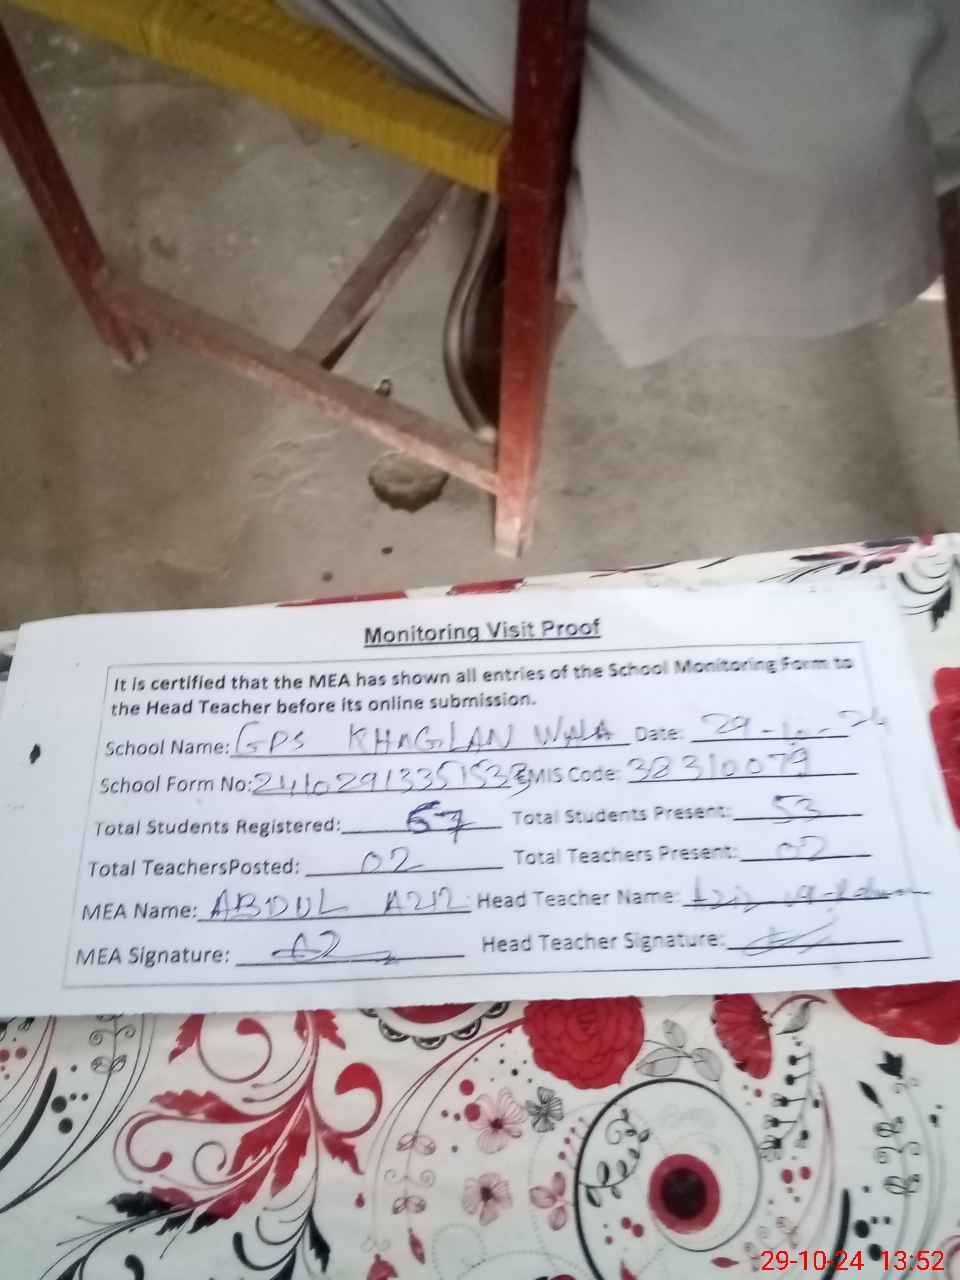 Monitoring Visit Proof
It is certified that the MEA has shown all entries of the School Monitoring Form to
the Head Teacher before its online submission.
School Name: GPS KHAGLAN WALA Date: 29-10-24
School Form No: EMIS Code: 38310079
Total Students Registered: 67 Total Students Present: 53
Total TeachersPosted: 02 Total Teachers Present: 02
MEA Name: ABDUL AZIZ Head Teacher Name: Aziz
MEA Signature: Head Teacher Signature:
29-10-24 13:52